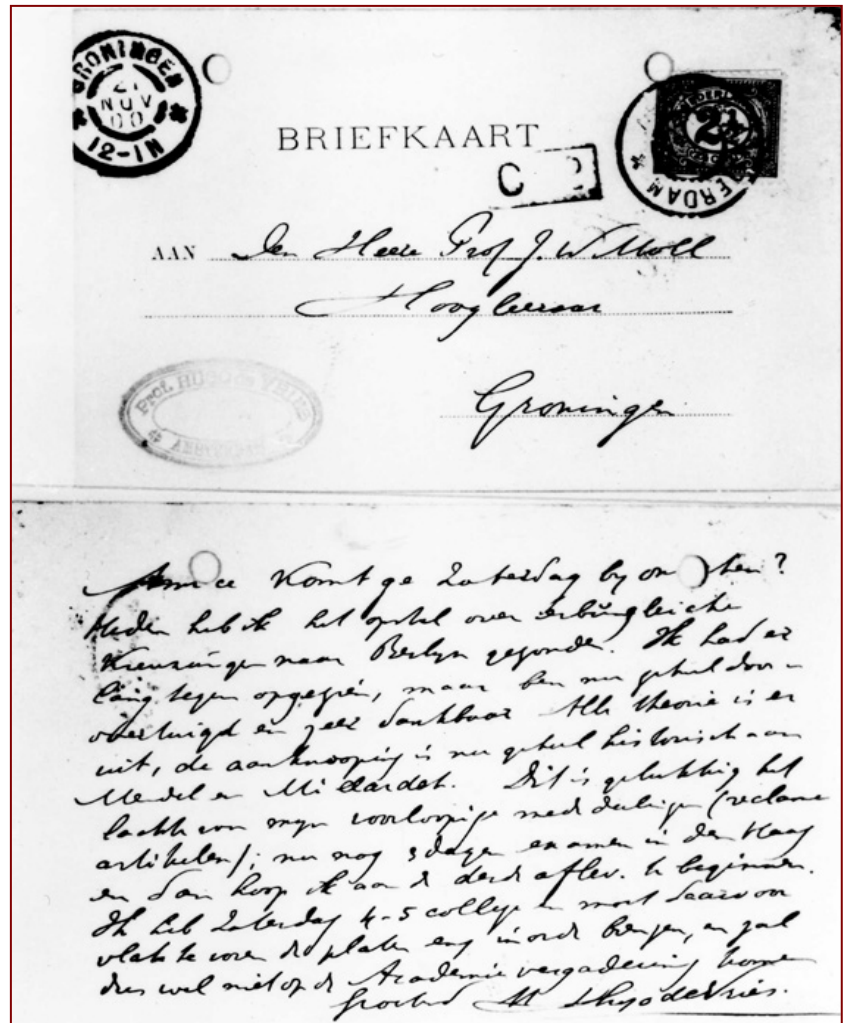 GRONINGEN
21
NOV
00
12-1N
BRIEFKAART
2½
C
AMSTERDAM
AAN Den Heere Prof J. W Moll
Hoogleeraar
Prof. HUGO DE VRIES
AMSTERDAM
Groningen
Amice Komt ge Zaterdag by ons eten?
Heden heb ik het opstel over erbungleiche
Kreuzungen naar Berlyn gezonden. Ik had er
lang tegen opgezien, maar ben nu geheel door-
overtuigd en zeer dankbaar Alle theorie is er
uit, de aanknooping is nu geheel historisch aan
Mendel en Millardet. Dit is gelukkig het
laatste van myn voorloopige mededeelingen (reclame
artikelen); nu nog 3 dagen examen in den Haag
en dan hoop ik aan de derde aflev. te beginnen.
Ik heb Zaterdag 4-5 college en moet daarvoor
vlak te voren de platen enz in orde brengen, en zal
dus wel niet op de Academie vergadering komen
Groetend Hugo de Vries.